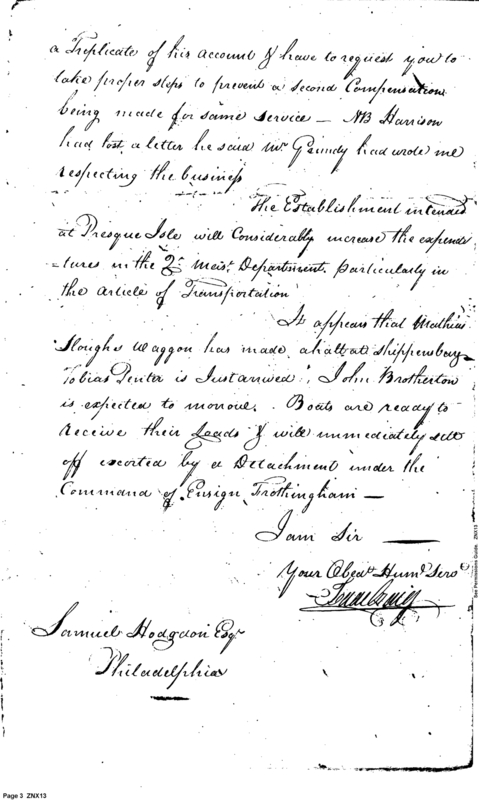 a Triplicate of his account & have to request you to
take proper steps to prevent a second Compensation
being made for same service — NB Harrison
had lost a letter he said Mr Grundy had wrote me
respecting the business
The Establishment intended
at Presque Isle will Considerably increase the expendi
=tures in the Qr Masr. Department, particularly in
the article of Transportation
It appears that Mathias
Sloughs Waggon has made a halt at Shippensburg
Tobias is Just arrived, John Brotherton
is expected to morrow. Boats are ready to
receive their Loads & will immediately sett
off escorted by a Detachment under the
Command of Ensign Frothingham —
I am Sir
Your Obedt Huml Servt
Isaac Craig
Samuel Hodgdon Esqr
Philadelphia
See Permissions Guide. ZNX13
Page 3 ZNX13